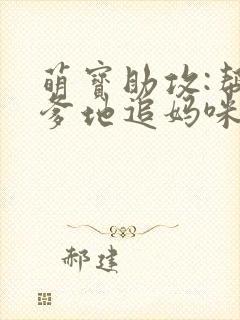 萌寳助攻:帮
爹地追妈咪
郝建